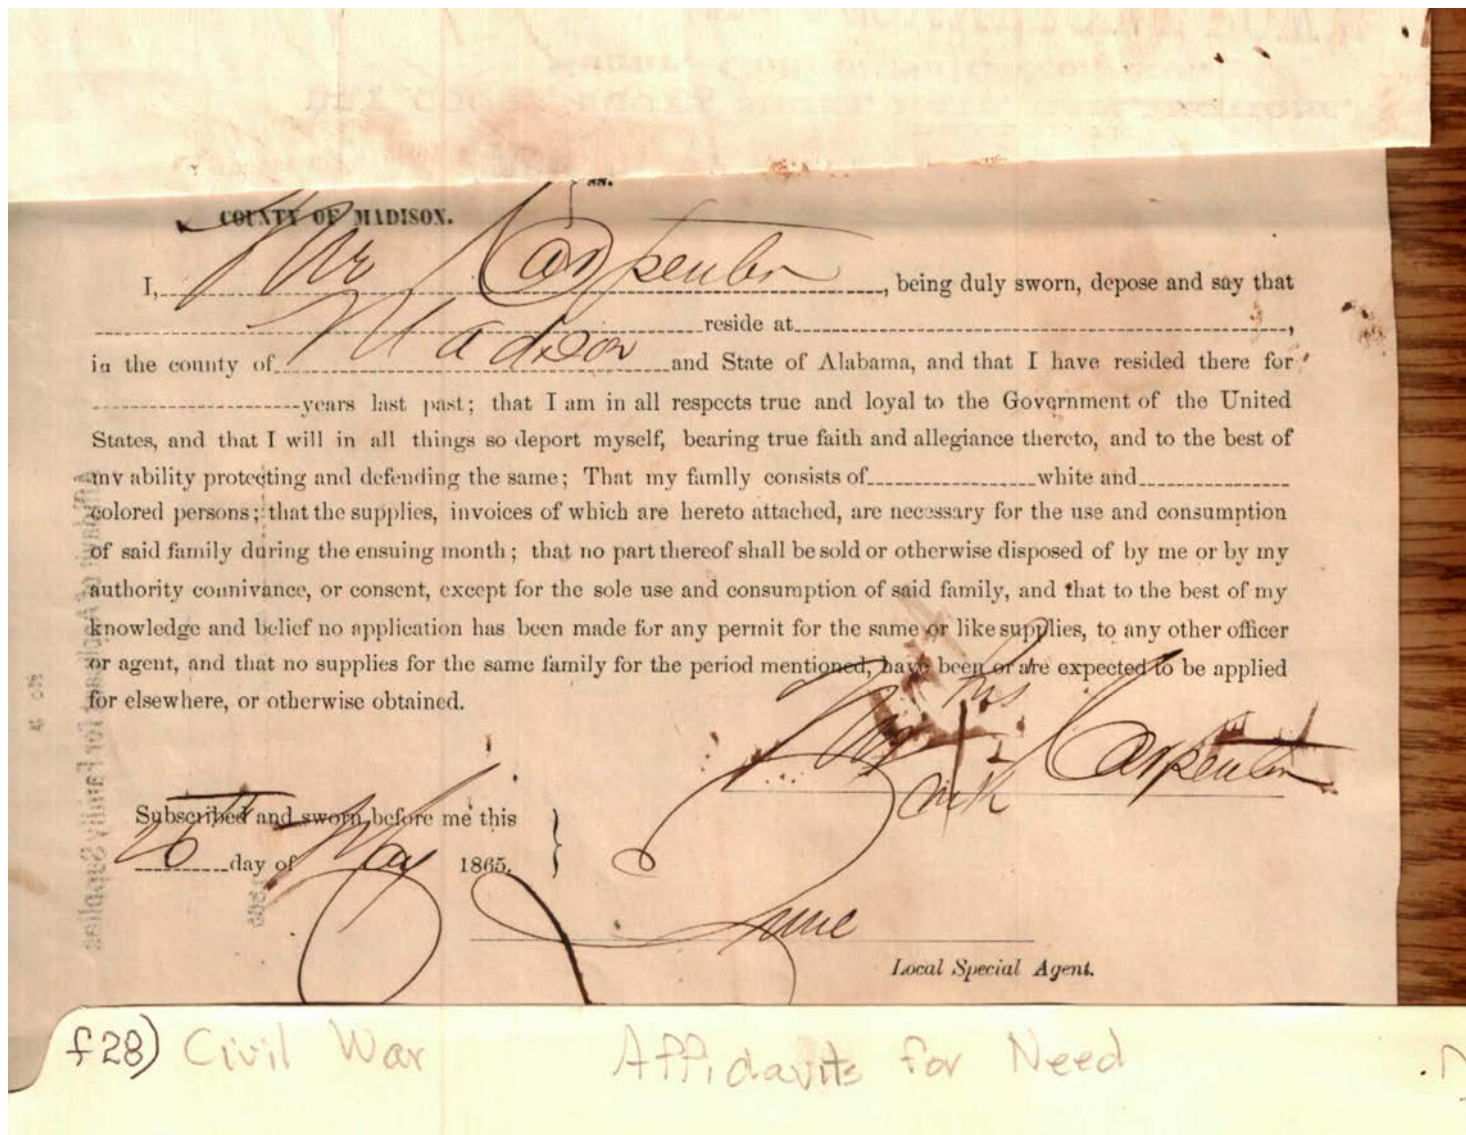 ss.
COUNTY OF MADISON.
I, Mr Carpenter, being duly sworn, depose and say that
reside at,
in the county of Madison and State of Alabama, and that I have resided there for
years last past; that I am in all respects true and loyal to the Government of the United
States, and that I will in all things so deport myself, bearing true faith and allegiance thereto, and to the best of
my ability protecting and defending the same; That my famlly consists of white and
colored persons; that the supplies, invoices of which are hereto attached, are necessary for the use and consumption
of said family during the ensuing month; that no part thereof shall be sold or otherwise disposed of by me or by my
authority connivance, or consent, except for the sole use and consumption of said family, and that to the best of my
knowledge and belief no application has been made for any permit for the same or like supplies, to any other officer
or agent, and that no supplies for the same family for the period mentioned, have been or are expected to be applied
for elsewhere, or otherwise obtained.
his
Mr X Carpenter
mark
Subscribed and sworn before me this
26th day of May 1865.
Local Special Agent.
f28) Civil War Affidavits for Need